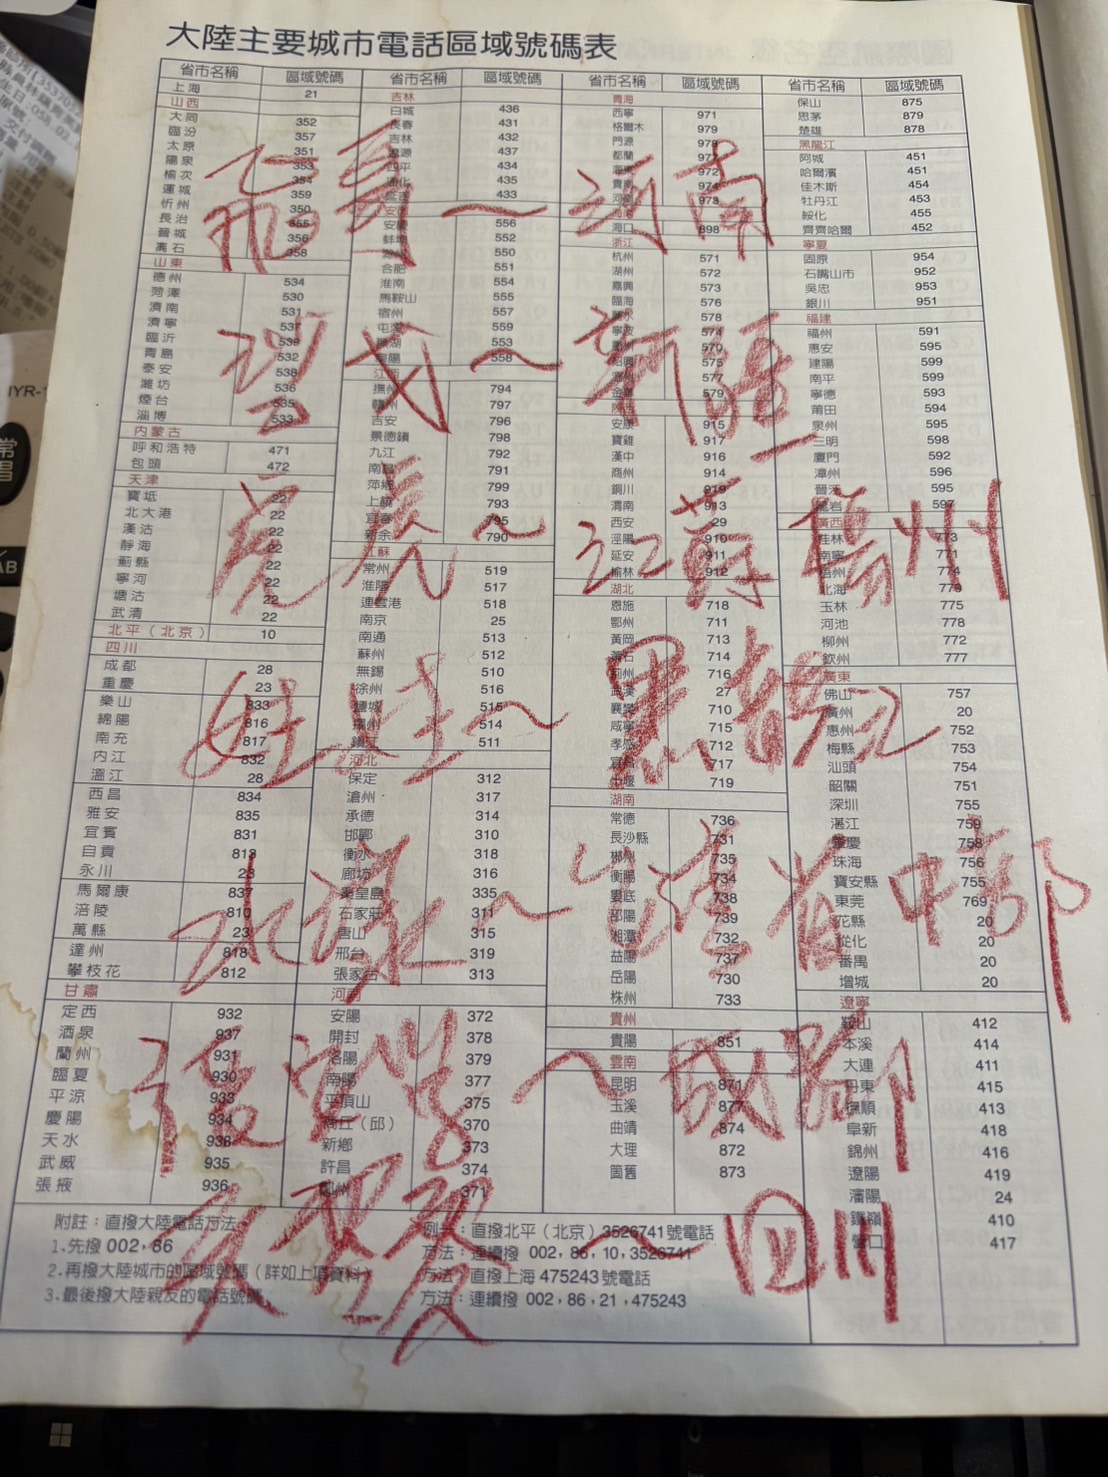 大陸主要城市電話區域號碼表
省市名稱 區域號碼
上海 21
山西
大同 352
臨汾 357
太原 351
陽泉 353
榆次 354
運城 359
忻州 350
長治 355
晉城 356
离石 358
山東
德州 534
菏澤 530
濟南 531
濟寧 537
臨沂 539
青島 532
泰安 538
濰坊 536
煙台 535
淄博 533
內蒙古
呼和浩特 471
包頭 472
天津
寶坻 22
北大港 22
漢沽 22
靜海 22
薊縣 22
寧河 22
塘沽 22
武清 22
北平（北京） 10
四川
成都 28
重慶 23
樂山 833
綿陽 816
南充 817
內江 832
溫江 28
西昌 834
雅安 835
宜賓 831
自貢 813
永川 23
馬爾康 837
涪陵 810
萬縣 23
達州 818
攀枝花 812
甘肅
定西 932
酒泉 937
蘭州 931
臨夏 930
平涼 933
慶陽 934
天水 938
武威 935
張掖 936
省市名稱 區域號碼
吉林
白城 436
長春 431
吉林 432
遼源 437
四平 434
通化 435
433
安慶 556
蚌埠 552
滁州 550
合肥 551
淮南 554
馬鞍山 555
宿州 557
屯溪 559
蕪湖 553
阜陽 558
江西
撫州 794
贛州 797
吉安 796
景德鎮 798
九江 792
南昌 791
萍鄉 799
上饒 793
宜春 795
新余 790
江蘇
常州 519
淮陰 517
連雲港 518
南京 25
南通 513
蘇州 512
無錫 510
徐州 516
鹽城 515
揚州 514
鎮江 511
河北
保定 312
滄州 317
承德 314
邯鄲 310
衡水 318
廊坊 316
秦皇島 335
石家莊 311
唐山 315
邢台 319
張家口 313
河南
安陽 372
開封 378
洛陽 379
南陽 377
平頂山 375
商丘（邱） 370
新鄉 373
許昌 374
鄭州 371
省市名稱 區域號碼
青海
西寧 971
格爾木 979
門源 978
都蘭 977
972
974
973
海口 898
浙江
杭州 571
湖州 572
嘉興 573
臨海 576
578
寧波 574
570
紹興 575
577
金華 579
陝西
安康 915
寶雞 917
漢中 916
商州 914
銅川 919
渭南 913
西安 29
涇陽 910
延安 911
榆林 912
湖北
恩施 718
鄂州 711
黃岡 713
黃石 714
荊州 716
武漢 27
襄樊 710
咸寧 715
孝感 712
宜昌 717
十堰 719
湖南
常德 736
長沙縣 731
郴州 735
衡陽 734
婁底 738
邵陽 739
湘潭 732
益陽 737
岳陽 730
株州 733
貴州
貴陽 851
雲南
昆明 871
玉溪 877
曲靖 874
大理 872
箇舊 873
省市名稱 區域號碼
保山 875
思茅 879
楚雄 878
黑龍江
阿城 451
哈爾濱 451
佳木斯 454
牡丹江 453
綏化 455
齊齊哈爾 452
寧夏
固原 954
石嘴山市 952
吳忠 953
銀川 951
福建
福州 591
惠安 595
建陽 599
南平 599
寧德 593
莆田 594
泉州 595
三明 598
廈門 592
漳州 596
晉江 595
龍岩 597
廣西
桂林 773
南寧 771
梧州 774
北海 779
玉林 775
河池 778
柳州 772
欽州 777
廣東
佛山 757
廣州 20
惠州 752
梅縣 753
汕頭 754
韶關 751
深圳 755
湛江 759
肇慶 758
珠海 756
寶安縣 755
東莞 769
花縣 20
從化 20
番禺 20
增城 20
遼寧
鞍山 412
本溪 414
大連 411
丹東 415
撫順 413
阜新 418
錦州 416
遼陽 419
瀋陽 24
鐵嶺 410
營口 417
附註：直撥大陸電話方法
1.先撥 002，86
2.再撥大陸城市的區域號碼（詳如上項資料）
3.最後撥大陸親友的電話號碼
例一：直撥北平（北京）3526741號電話
方法：連續撥 002，86，10，3526741
方法：直撥上海 475243 號電話
方法：連續撥 002，86，21，475243
飛長～河南
～新疆
亮亮～江蘇 揚州
～黑龍江
水添～台湾省中部
～成都
～四川